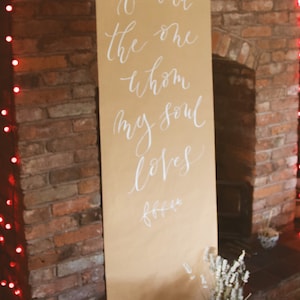 the one
whom
my soul
loves